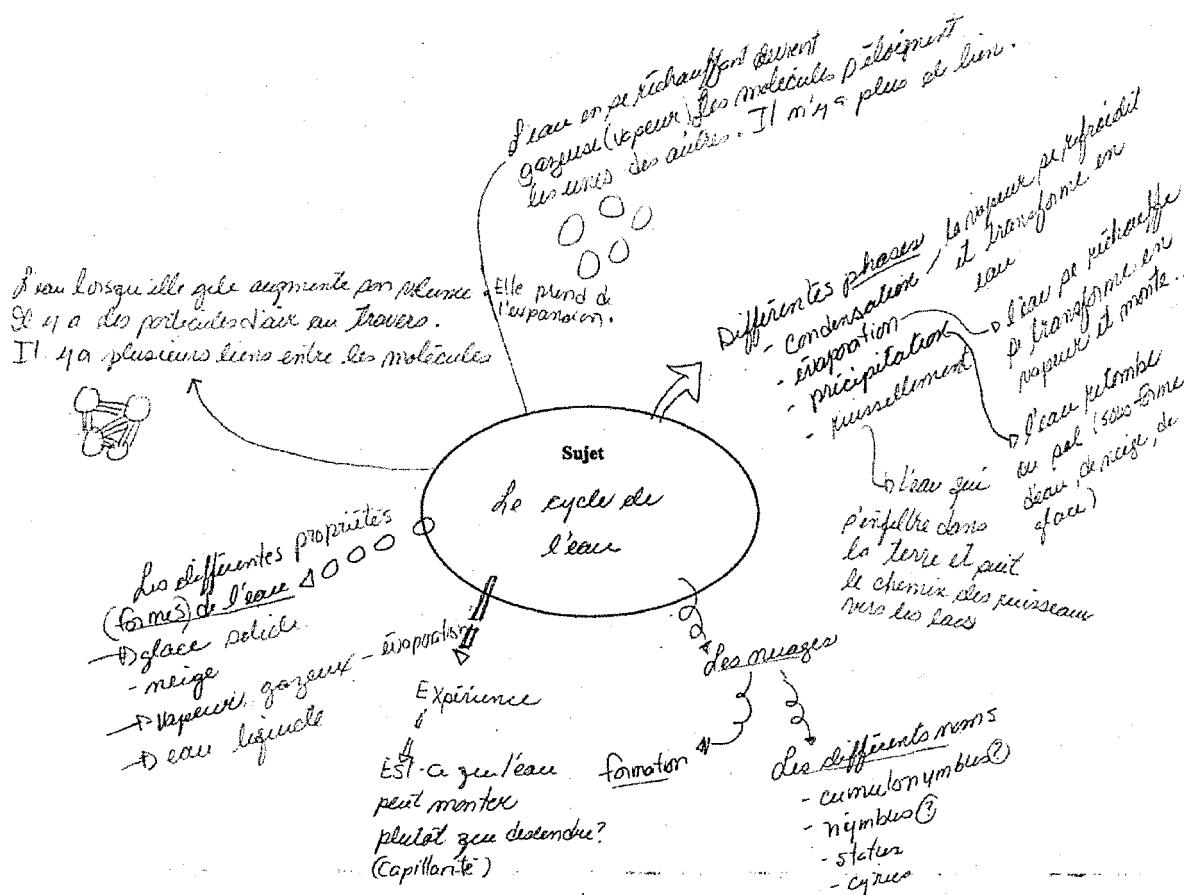 L'eau en se réchauffant devient
gazeuse (vapeur) Les molécules s'éloignent
les unes des autres. Il n'y a plus de lien.
L'eau lorsqu'elle gèle augmente son volume.
Il y a des particules d'air au travers.
Il y a plusieurs liens entre les molécules
Elle prend de
l'expansion.
Différentes phases
- condensation
- évaporation
- précipitation
- ruissellement
la vapeur se refroidit
et transforme en
eau
l'eau se réchauffe
se transforme en
vapeur et monte...
l'eau retombe
au sol (sous-forme
d'eau, de neige, de
glace)
l'eau qui
s'infiltre dans
la terre et suit
le chemin des ruisseaux
vers les lacs
Sujet
Le cycle de
l'eau
Les différentes propriétés
(formes) de l'eau
glace solide
- neige
vapeur, gazeux - évaporation
eau liquide
Expérience
Est-ce que l'eau
peut monter
plutôt que descendre?
(Capillarité)
Les nuages
formation
Les différents noms
- cumulonymbus (?)
- nymbus (?)
- status
- cyrus